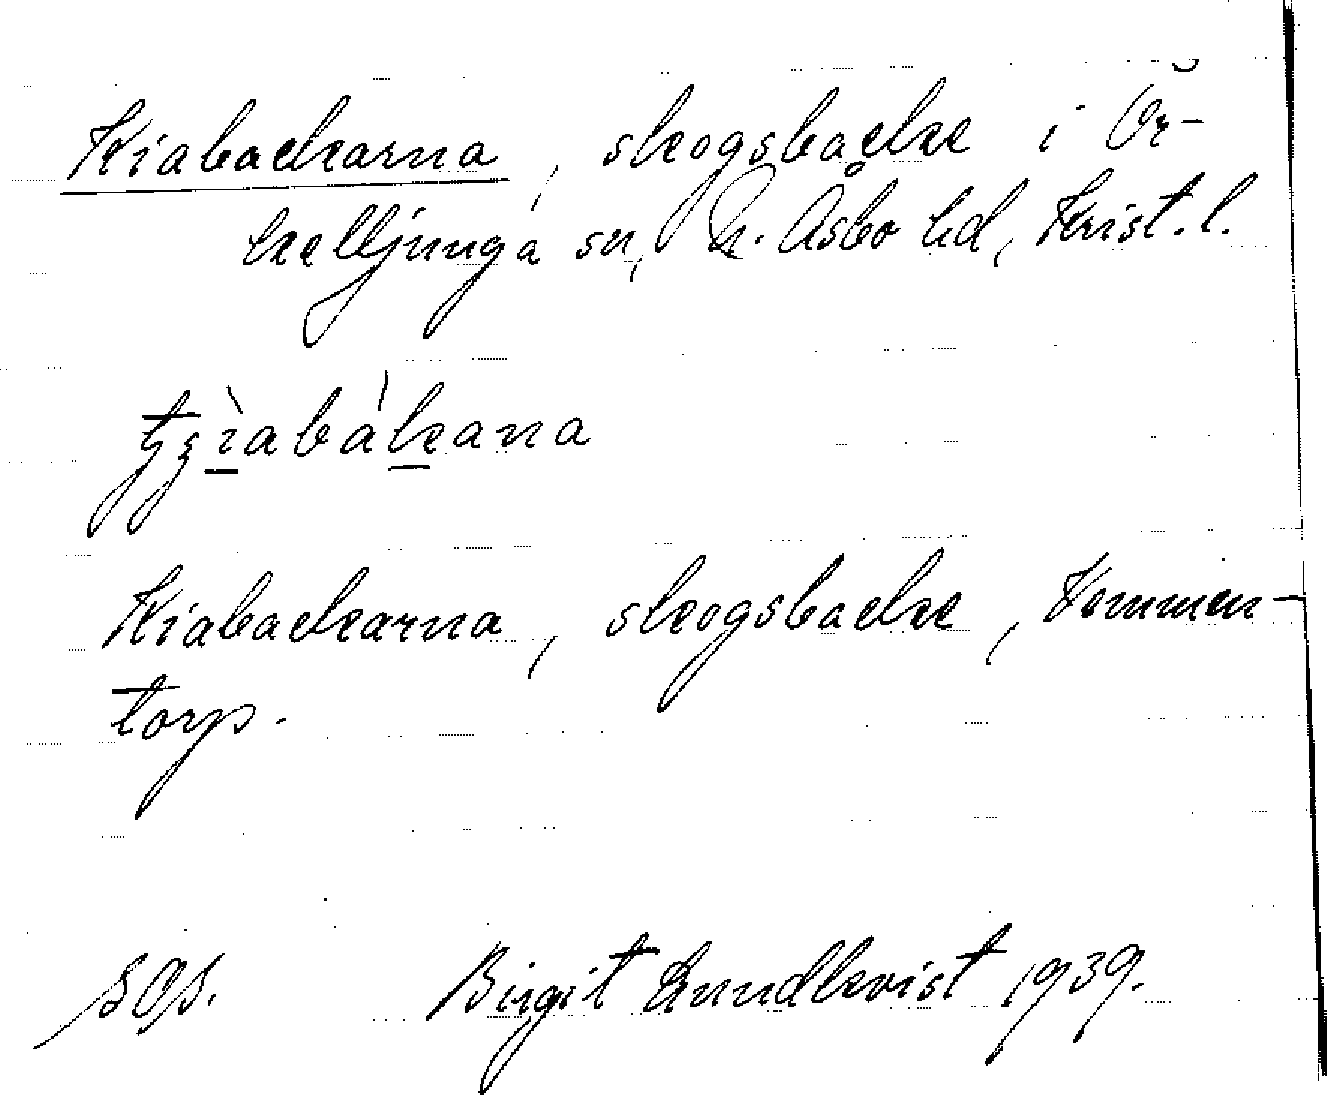 Kiabackarna, skogsbacke i Ör-
kelljunga sn, N. Åsbo hd, Krist. l.
Kiabackarna, skogsbacke, Tommen-
torp.
Birgit Lundkvist 1939.